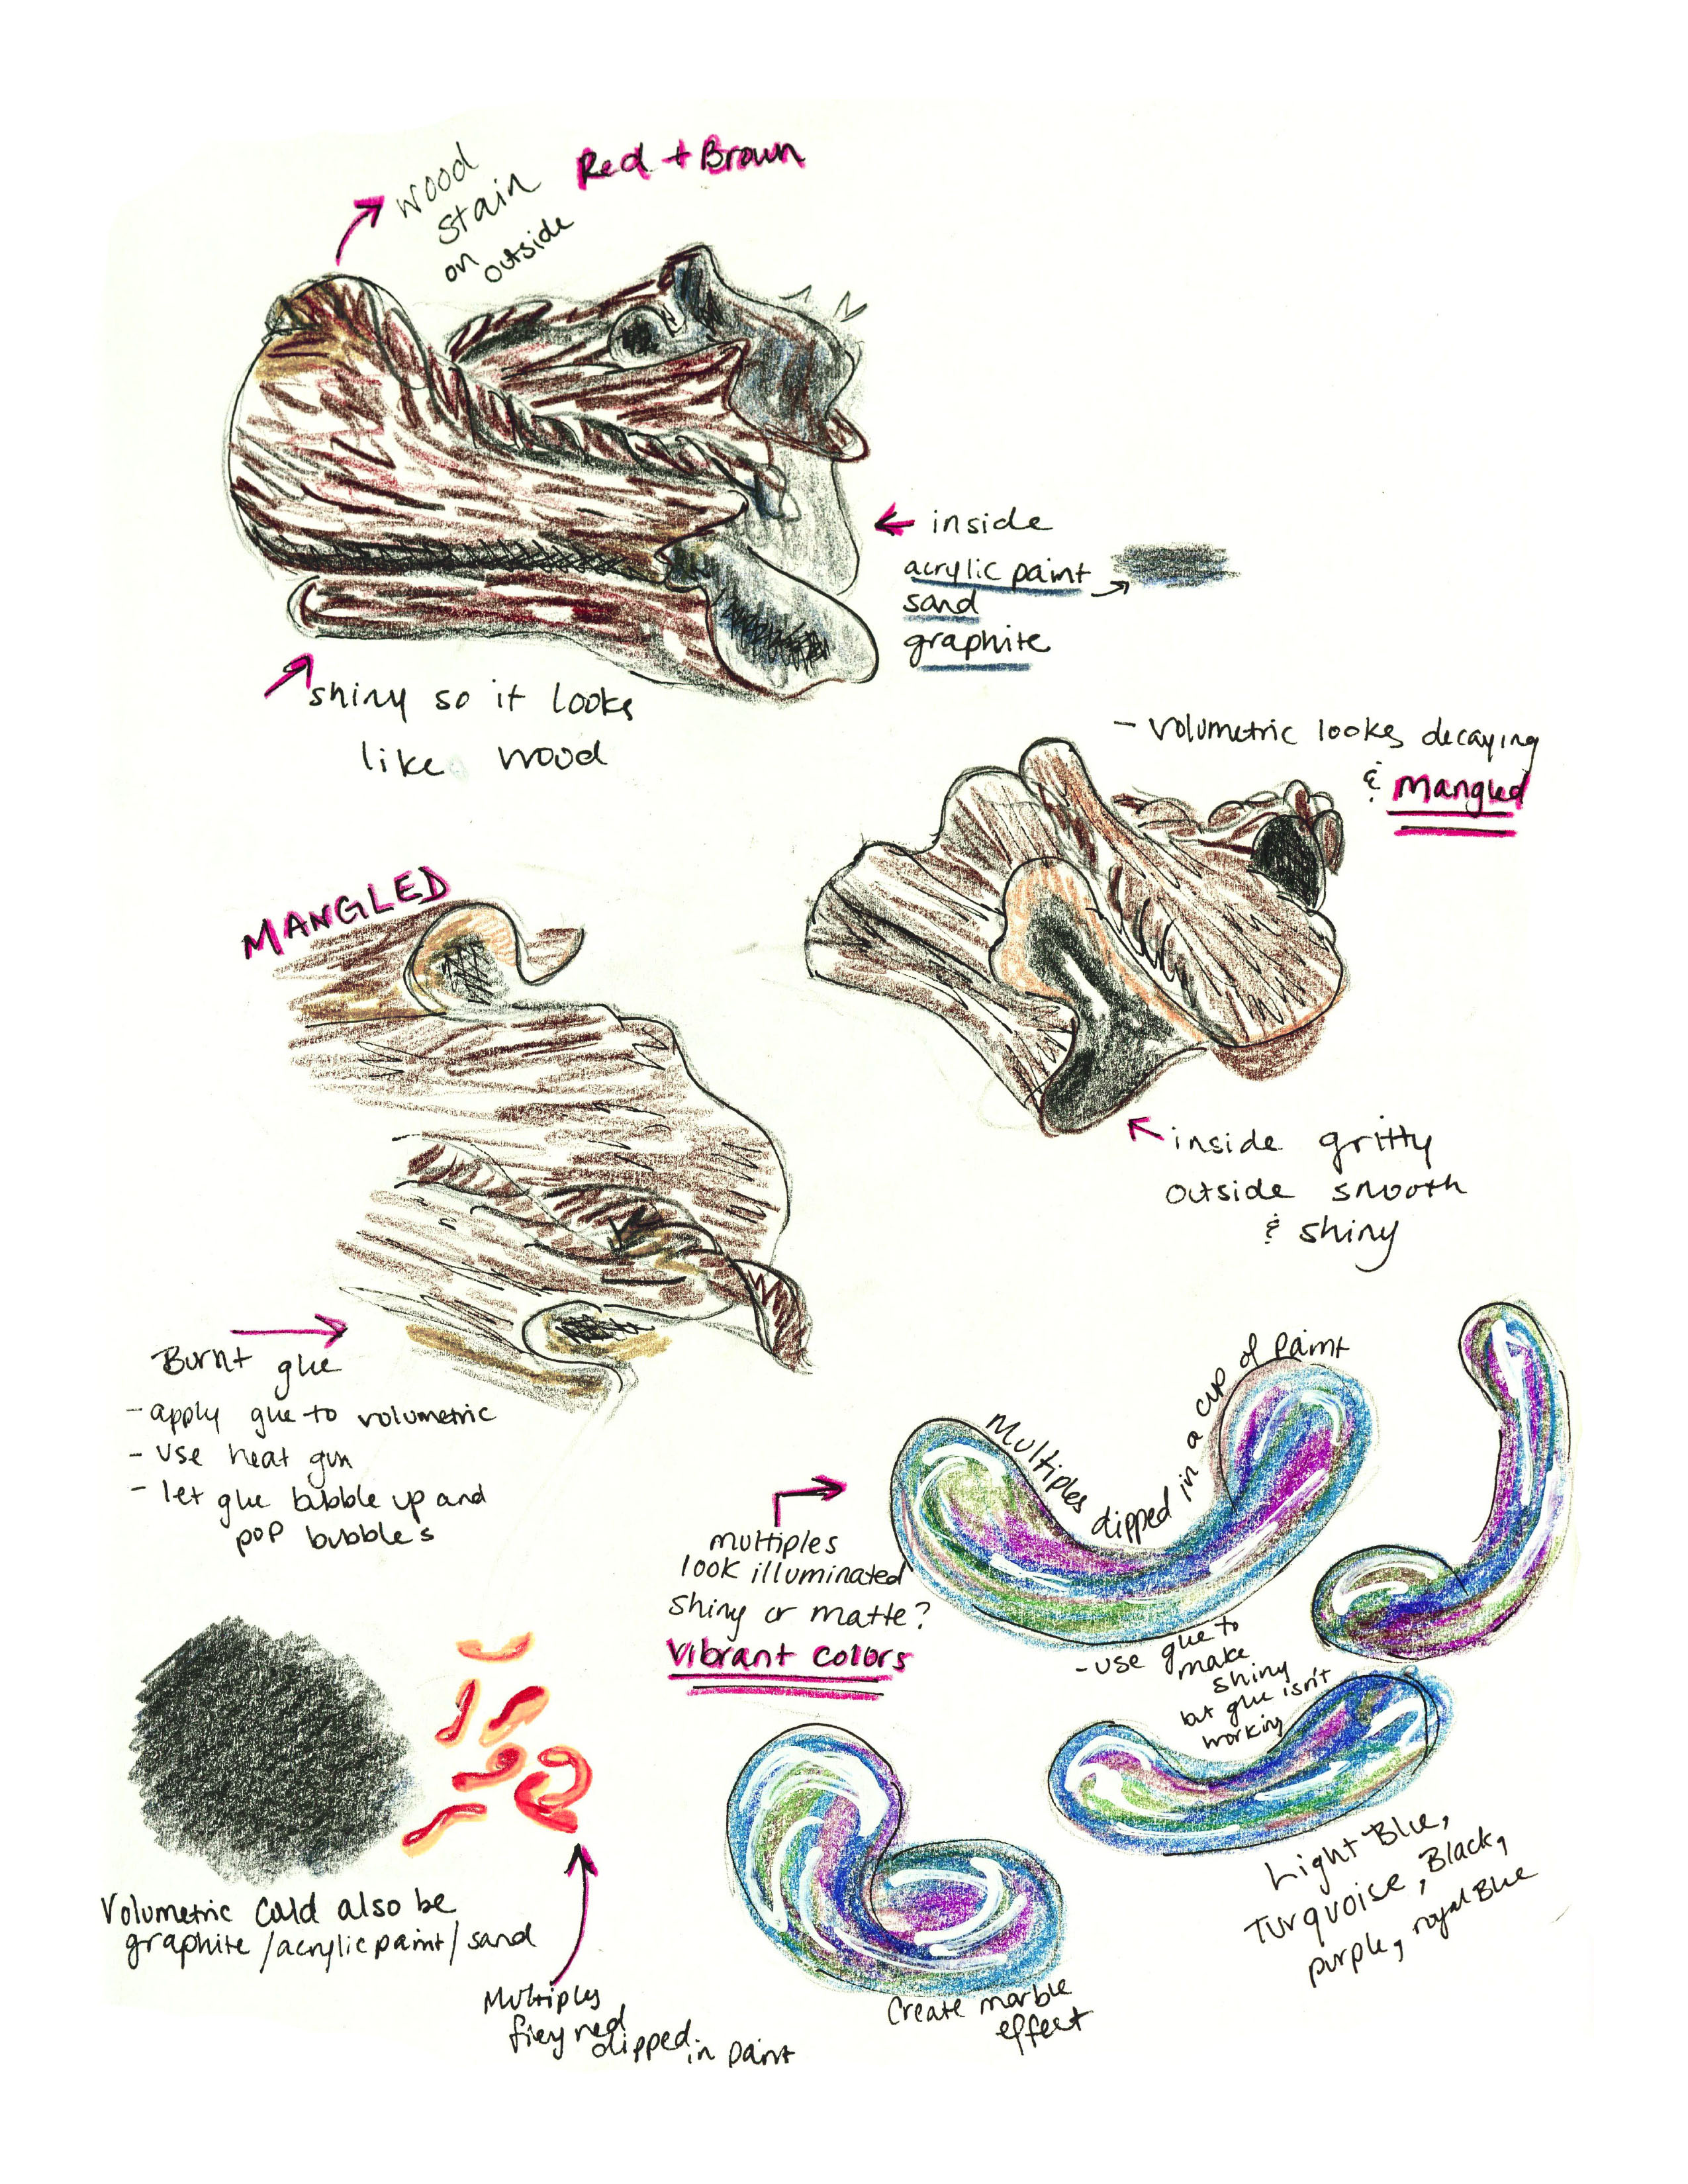 wood
stain
on
outside
Red + Brown
inside
acrylic paint
sand
graphite
shiny so it looks
like wood
- volumetric lookes decaying
& Mangled
MANGLED
inside gritty
outside smooth
& shiny
Burnt glue
- apply glue to volumetric
- use heat gun
- let glue bubble up and
pop bubbles
Multiples dipped in a cup of paint
multiples
look illuminated
shiny or matte?
Vibrant colors
- use glue to
make
shiny
but glue isn't
working
Light Blue,
Turquoise, Black,
purple, royal Blue
Volumetric could also be
graphite/acrylic paint/sand
Multiples
firey red
dipped in paint
Create marble
effect